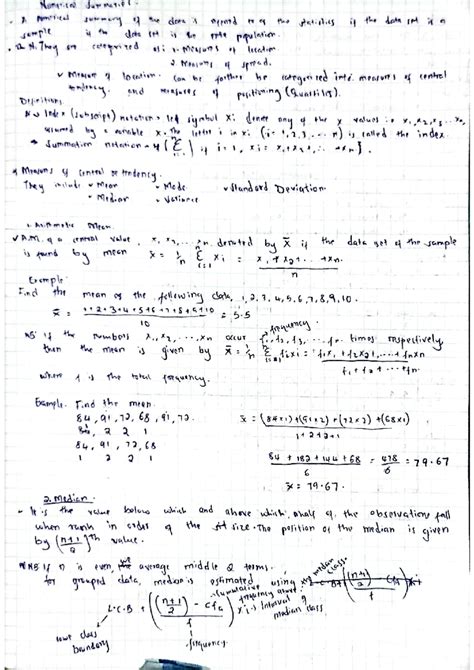 Numerical Summaries.
A numerical summary of the data is refered to as the statistics if the data set is a
sample if the data set is the entire population.
They are categorized as: 1. Measures of location
2. Measures of spread.
Measures of location can be further be categorised into: measures of central
tendency, and measures of positioning (Quartiles).
Definitions
Index (subscript) notation: let symbol xi denote any of the values i.e x1, x2, x3, .. xn
assumed by a variable x. The letter i in xi (i = 1, 2, 3, ... n) is called the index.
Summation notation
Measures of central tendency.
They include Mean Mode Standard Deviation
Median Variance
1. Arithmetic Mean
A.M. of a central value, x1, x2, ... xn denoted by x̄ if the data set of the sample
is found by mean x̄ = 1/n Σ xi = x1 + x2 + ... + xn / n
Example
Find the mean of the following data, 1, 2, 3, 4, 5, 6, 7, 8, 9, 10.
x̄ = 1+2+3+4+5+6+7+8+9+10 / 10 = 5.5
frequency
NB: if the numbers x1, x2, ..., xn occur f1, f2, f3, ... fn times respectively,
then the mean is given by x̄ = 1/n Σ fixi = f1x1 + f2x2 + ... + fnxn / f1 + f2 + ... fn
where f is the total frequency.
Example. Find the mean.
84, 91, 72, 68, 91, 72. x̄ = (84x1) + (91x2) + (72x2) + (68x1) / 1+2+2+1
84, 91, 72, 68
1 2 2 1
84 + 182 + 144 + 68 / 6 = 478 / 6 = 79.67
x̄ = 79.67.
2. Median.
- It is the value below which and above which, half of the observations fall
when rank in order of the size. The position of the median is given
by (n+1 / 2)th value.
NB: If n is even, average middle 2 terms.
for grouped data, median is estimated using
cumulative frequency above the median class.
L.C.B + ((n+1 / 2) - cfa / f) x i → Interval of
median class
lower class
boundary
frequency